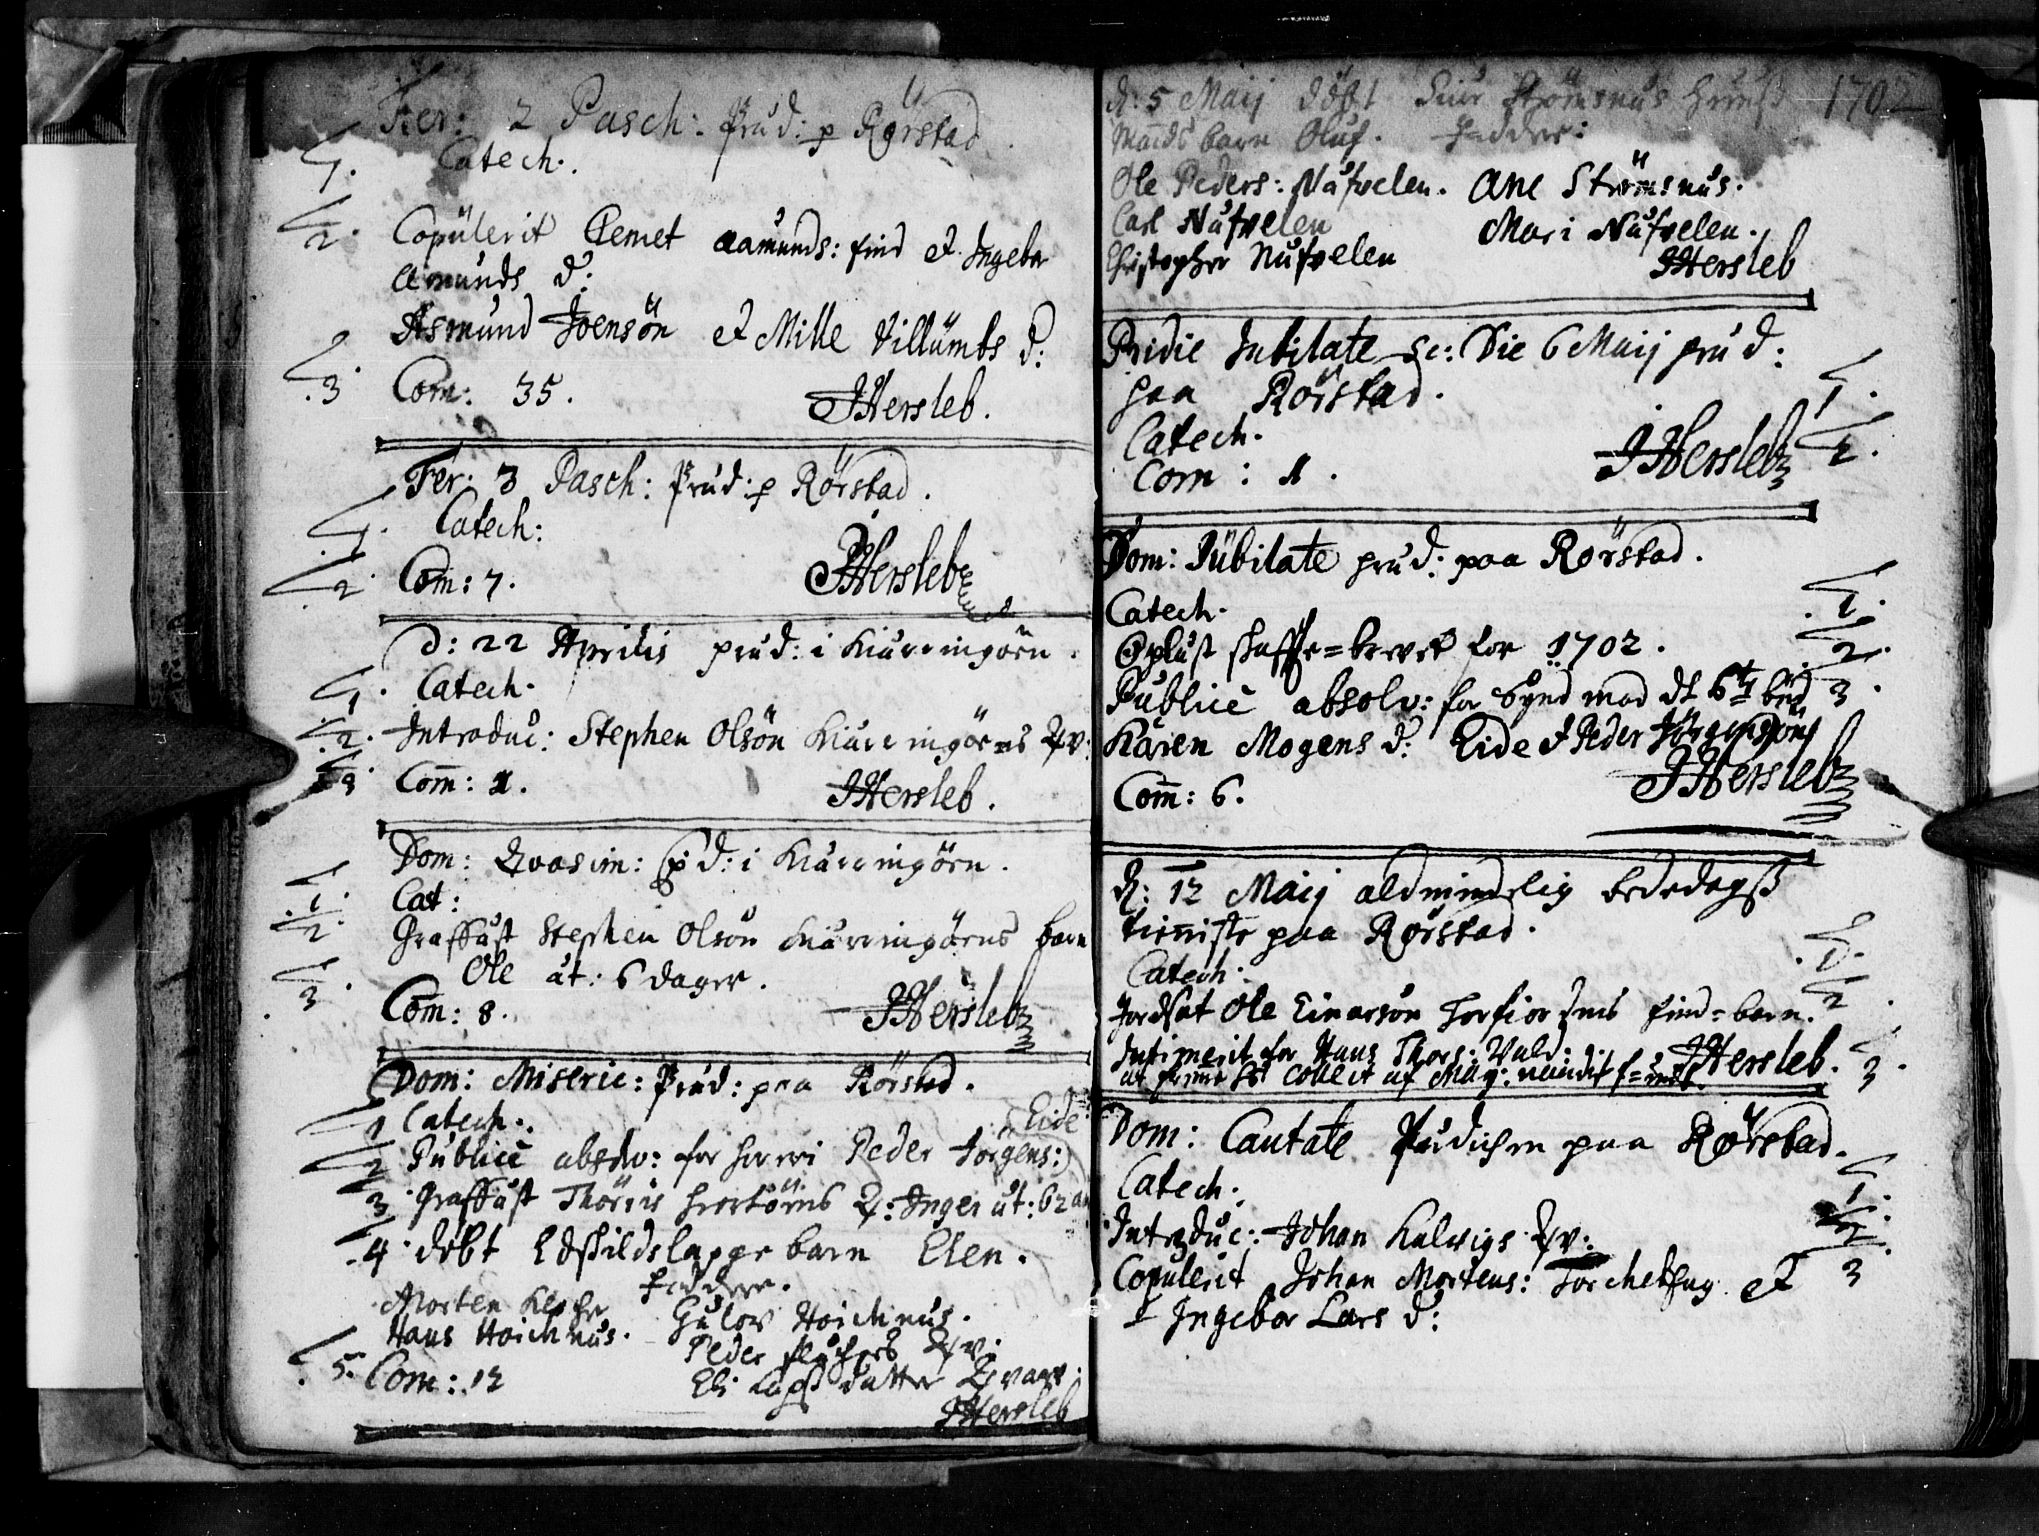 Fer: 2 Pasch: Præd: p Rørstad
1. Catech.
2. Copulerit Clemet Aamunds: find et Ingebor
Amunds d:
Asmund Joensön et Mille Villumbs d:
3. Com: 35. JHersleb.
Fer: 3 Pasch: Præd: p Rörstad.
1. Catech:
2. Com: 7. JHersleb
d: 22 Aprilis præd: i Kiærringöen.
1. Catech.
2. Introduc: Stephen Olsön Kiærringöens Qv:
3. Com: 1. JHersleb.
Dom: Qvasim: præd: i Kiærringöen.
1. Cat:
2. Graffæst Stephen Olsön Kiærringöens barn
Ole æt: 6 dager.
3. Com: 8. JHersleb
Dom: Miseric: Præd: paa Rörstad.
1 Catech. Eide
2 Publicè absolv: for horeri Peder Jörgens:
3. Graffæst Q: Inger æt: 62
4. döbt barn Elen.
Faddere.
Morten Gulov Hoichnæs.
Hans Hoichnæs. Peder Qv:
5. Com: 12 Eli datter
JHersleb
d: 5 Maij döbt Strömsnæs 1702
barn Oluf. Faddere:
Ole Peders: Næfvelen. Ane Strömsnæs.
Carl Næfvelen Mari Næfvelen.
Christopher Næfvelen JHersleb
Pridie Jubilate sc: Die 6 Maij præd:
paa Rörstad. 1.
Catech.
Com: 1. JHersleb 2.
Dom: Jubilate præd: paa Rörstad.
Catech. 1.
Oplæst skaffe=brevet for 1702. 2.
Publicè absolv: for Synd mod dt 6te bud 3.
Karen Mogens d: Eide et Peder Jörgensön
Com: 6. JHersleb
d: 12 Maij aldmindelig bededagß
tienniste paa Rörstad.
Catech. 1.
Jordsat Ole Einarsön find=barn. 2.
Intimerit for Hans
JHersleb. 3.
Dom: Cantate Prædichen paa Rörstad.
Catech. 1.
Introduc: Johan Kalvigs Qv: 2.
Copulerit Johan Mortens: et 3
Ingebor Lars d: